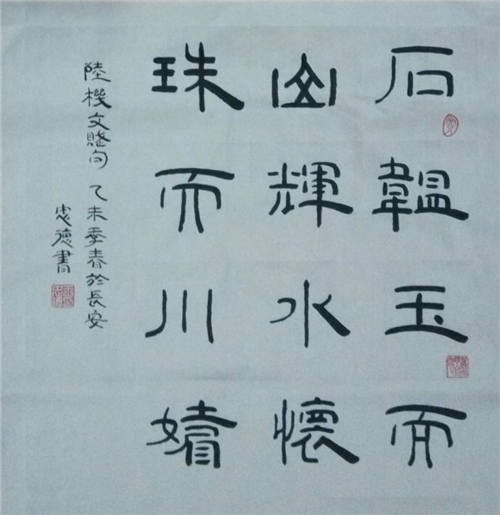 石韞玉而
山輝水懷
珠而川媚
陸機文賦句 乙未季春於長安
忠德書